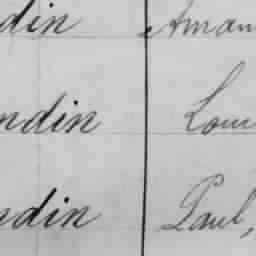 din Aman
ndin Loui
ndin Paul,